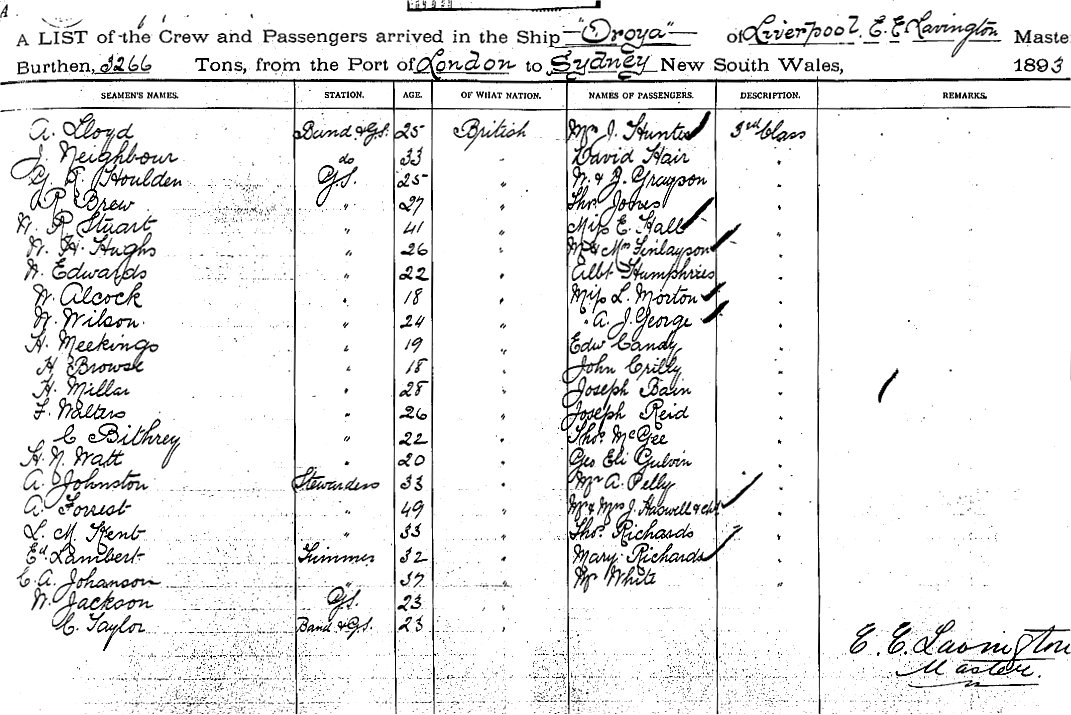 A LIST of the Crew and Passengers arrived in the Ship "Oroya" of Liverpool, E. E. Lavington Maste
Burthen, 3266 Tons, from the Port of London to Sydney New South Wales, 1893
SEAMEN'S NAMES. STATION. AGE. OF WHAT NATION. NAMES OF PASSENGERS. DESCRIPTION. REMARKS.
A. Lloyd Band & G.S. 25 British Mrs J. Hunter 3rd Class
J. Neighbour do 33 " David Hair "
G. F. Houlden G.S. 25 " W. & J. Grayson "
R. Brew " 27 " Thos. Jones "
W. R. Stuart " 41 " Miss E. Hall "
W. H. Hughs " 26 " Mr & Mrs Finlayson "
W. Edwards " 22 " Albt Humphries "
W. Alcock " 18 " Miss L. Morton "
W. Wilson. " 24 " " A. J. George "
H. Meekings " 19 " Edw Candy "
H. Browse " 18 " John Crilly "
H. Millar " 28 " Joseph Bain "
F. Walters " 26 " Joseph Reid "
C. Bithrey " 22 " Thos. McGee "
H. N. Watt " 20 " Geo Eli Gulvin "
A. Johnston Stewardess 33 " Mr A. Pelly "
A. Forrest " 49 " Mr & Mrs J. Haswell & chd "
L. M. Kent " 33 " Thos. Richards "
Ed. Lambert Trimmer 32 " Mary Richards "
C. A. Johanson " 37 " Mr White "
W. Jackson G.S. 23 "
C. Taylor Band & G.S. 23 "
E. E. Lavington
Master.